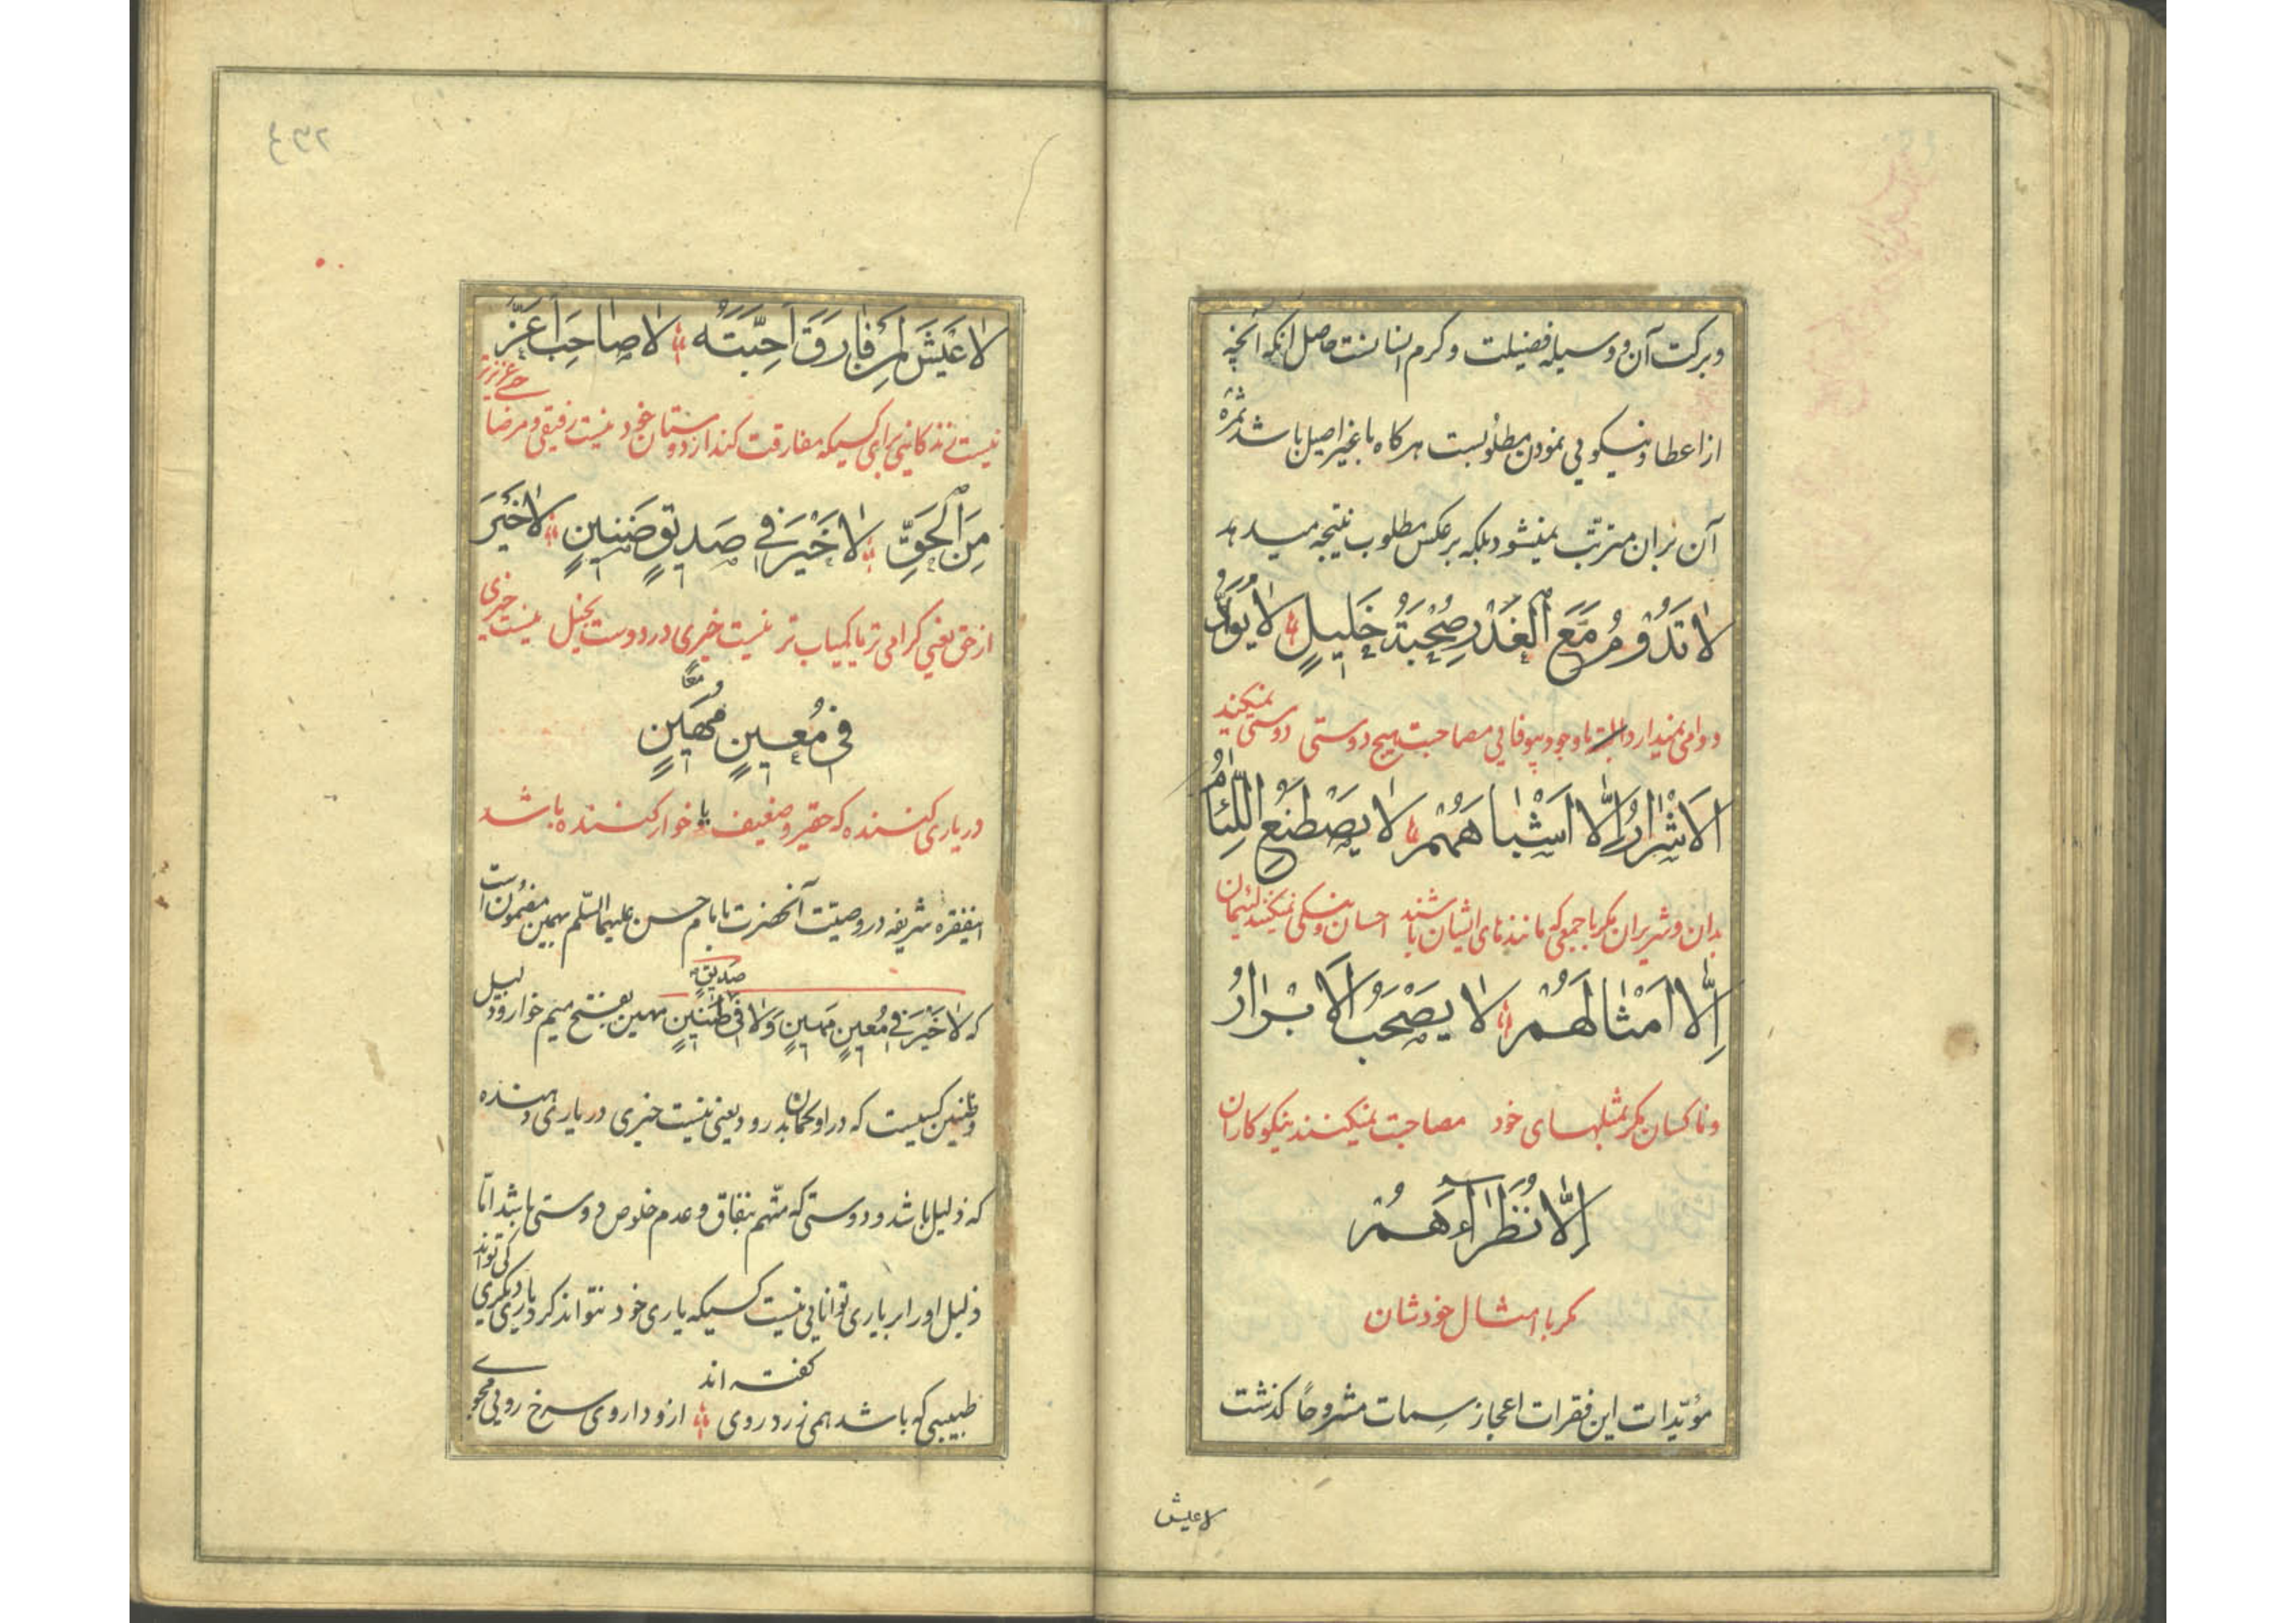 وبرکت آن و وسیله فضیلت و کرم انسانست حاصل انکه آنچه
از اعطا و نیکویی نمودن مطلوبست هرکاه با غیر اصیل باشد ثمرهٔ
آن بران مترتّب نمیشود بلکه برعکس مطلوب نتیجه میدهد
لَا تَدُوْمُ مَعَ الْغَدْرِ صُحْبَةُ خَلِيلٍ لَا يُوَادُّ
دوامی نمیدارد البته با وجود بیوفایی مصاحبت هیچ دوستی دوستی نمیکنند
الْاَشْرَارُ اِلَّا اَشْبَاهَهُمْ لَا يَصْطَنِعُ اللِّئَامُ
بدان و شریران مکر با جمعی که مانندهای ایشان باشند احسان و نیکی نمیکنند لئیمان
اِلَّا اَمْثَالَهُمْ لَا يَصْحَبُ الْاَبْرَارُ
و ناکسان مکر بمثلهای خود مصاحبت نمیکنند نیکوکاران
اِلَّا نُظَرَاءَهُمْ
مکر با امثال خودشان
مؤیّدات این فقرات اعجاز سمات مشروحاً کذشت
لا عیش
۲۶۴
لَا عَيْشَ لِمَنْ فَارَقَ اَحِبَّتَهُ لَا صَاحِبَ اَعَزُّ
نیست زندکانیی برای کسیکه مفارقت کند از دوستان خود نیست رفیقی و مرضا
حی عزیزتر
مِنَ الْحَقِّ لَا خَيْرَ فِي صَدِيقٍ ضَنِينٍ لَا خَيْرَ
از حق یعنی کرامی تر یا کمیاب تر نیست خیری در دوست بخیل نیست خیری
فِي مُعِينٍ مُهَيْنٍ
معًا
در یاری کننده که حقیر و ضعیف یا خوار کننده باشد
اینفقره شریفه در وصیّت آنحضرت بامام حسن علیهما السّلم بهمین مضمون است
صدیقٍ
که لَا خَيْرَ فِي مُعِينٍ مَهِينٍ وَلَا فِي ظَنِينٍ مهین بفتح میم خوار و ذلیل
و ظنین کسیست که در او کمان بد رود یعنی نیست خیری در یاری دهنده
که ذلیل باشد و دوستی که متّهم بنفاق و عدم خلوص دوستی باشد امّا
ذلیل او را بر یاری توانایی نیست کسیکه یاری خود نتواند کرد یاری دیکری
کی تواند
کفته اند
طبیبی که باشد همی زرد روی ازو داروی سرخ رویی مجوی